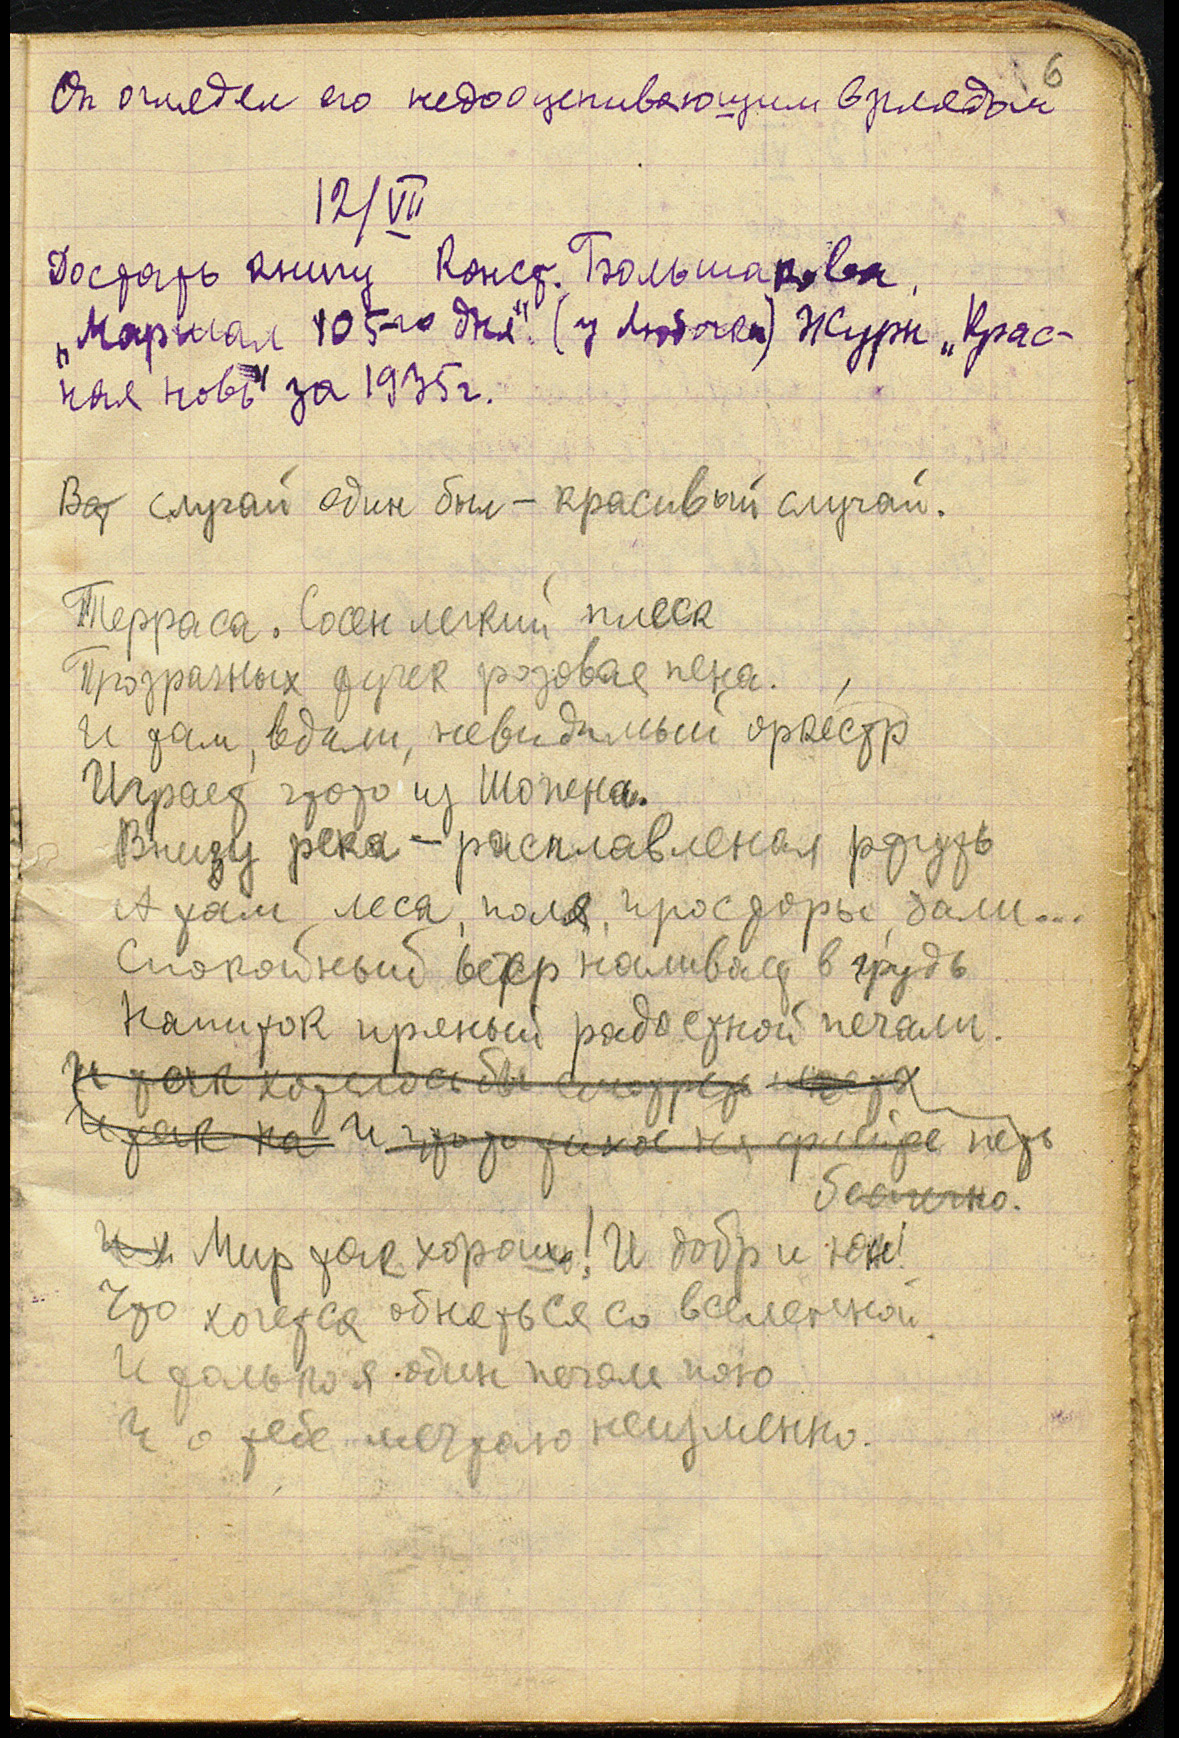 6
Он оглядел его недооценивающим взглядом
12/VII
Достать книгу Конст. Большакова,
„Маршал 105-го дня". (у Любочки) Журн „Крас-
ная новь" за 1935г.
Вот случай один был – красивый случай.
Терраса. Сосен легкий плеск
Прозрачных тучек розовая пена.
И там, вдали, невидимый оркестр
Играет что то из Шопена.
Внизу река – расплавленая ртуть
А там леса, поля, просторы, дали...
Спокойный ветер наливает в грудь
Напиток пряный радостной печали.
И так хотелось бы смотреть
И так на И что то тихое на флейте петь
беспечно.
И х Мир так хорош! И добр и юн!
Что хочется обняться со вселенной.
И только я один печали пою
И о тебе мечтаю неизменно.